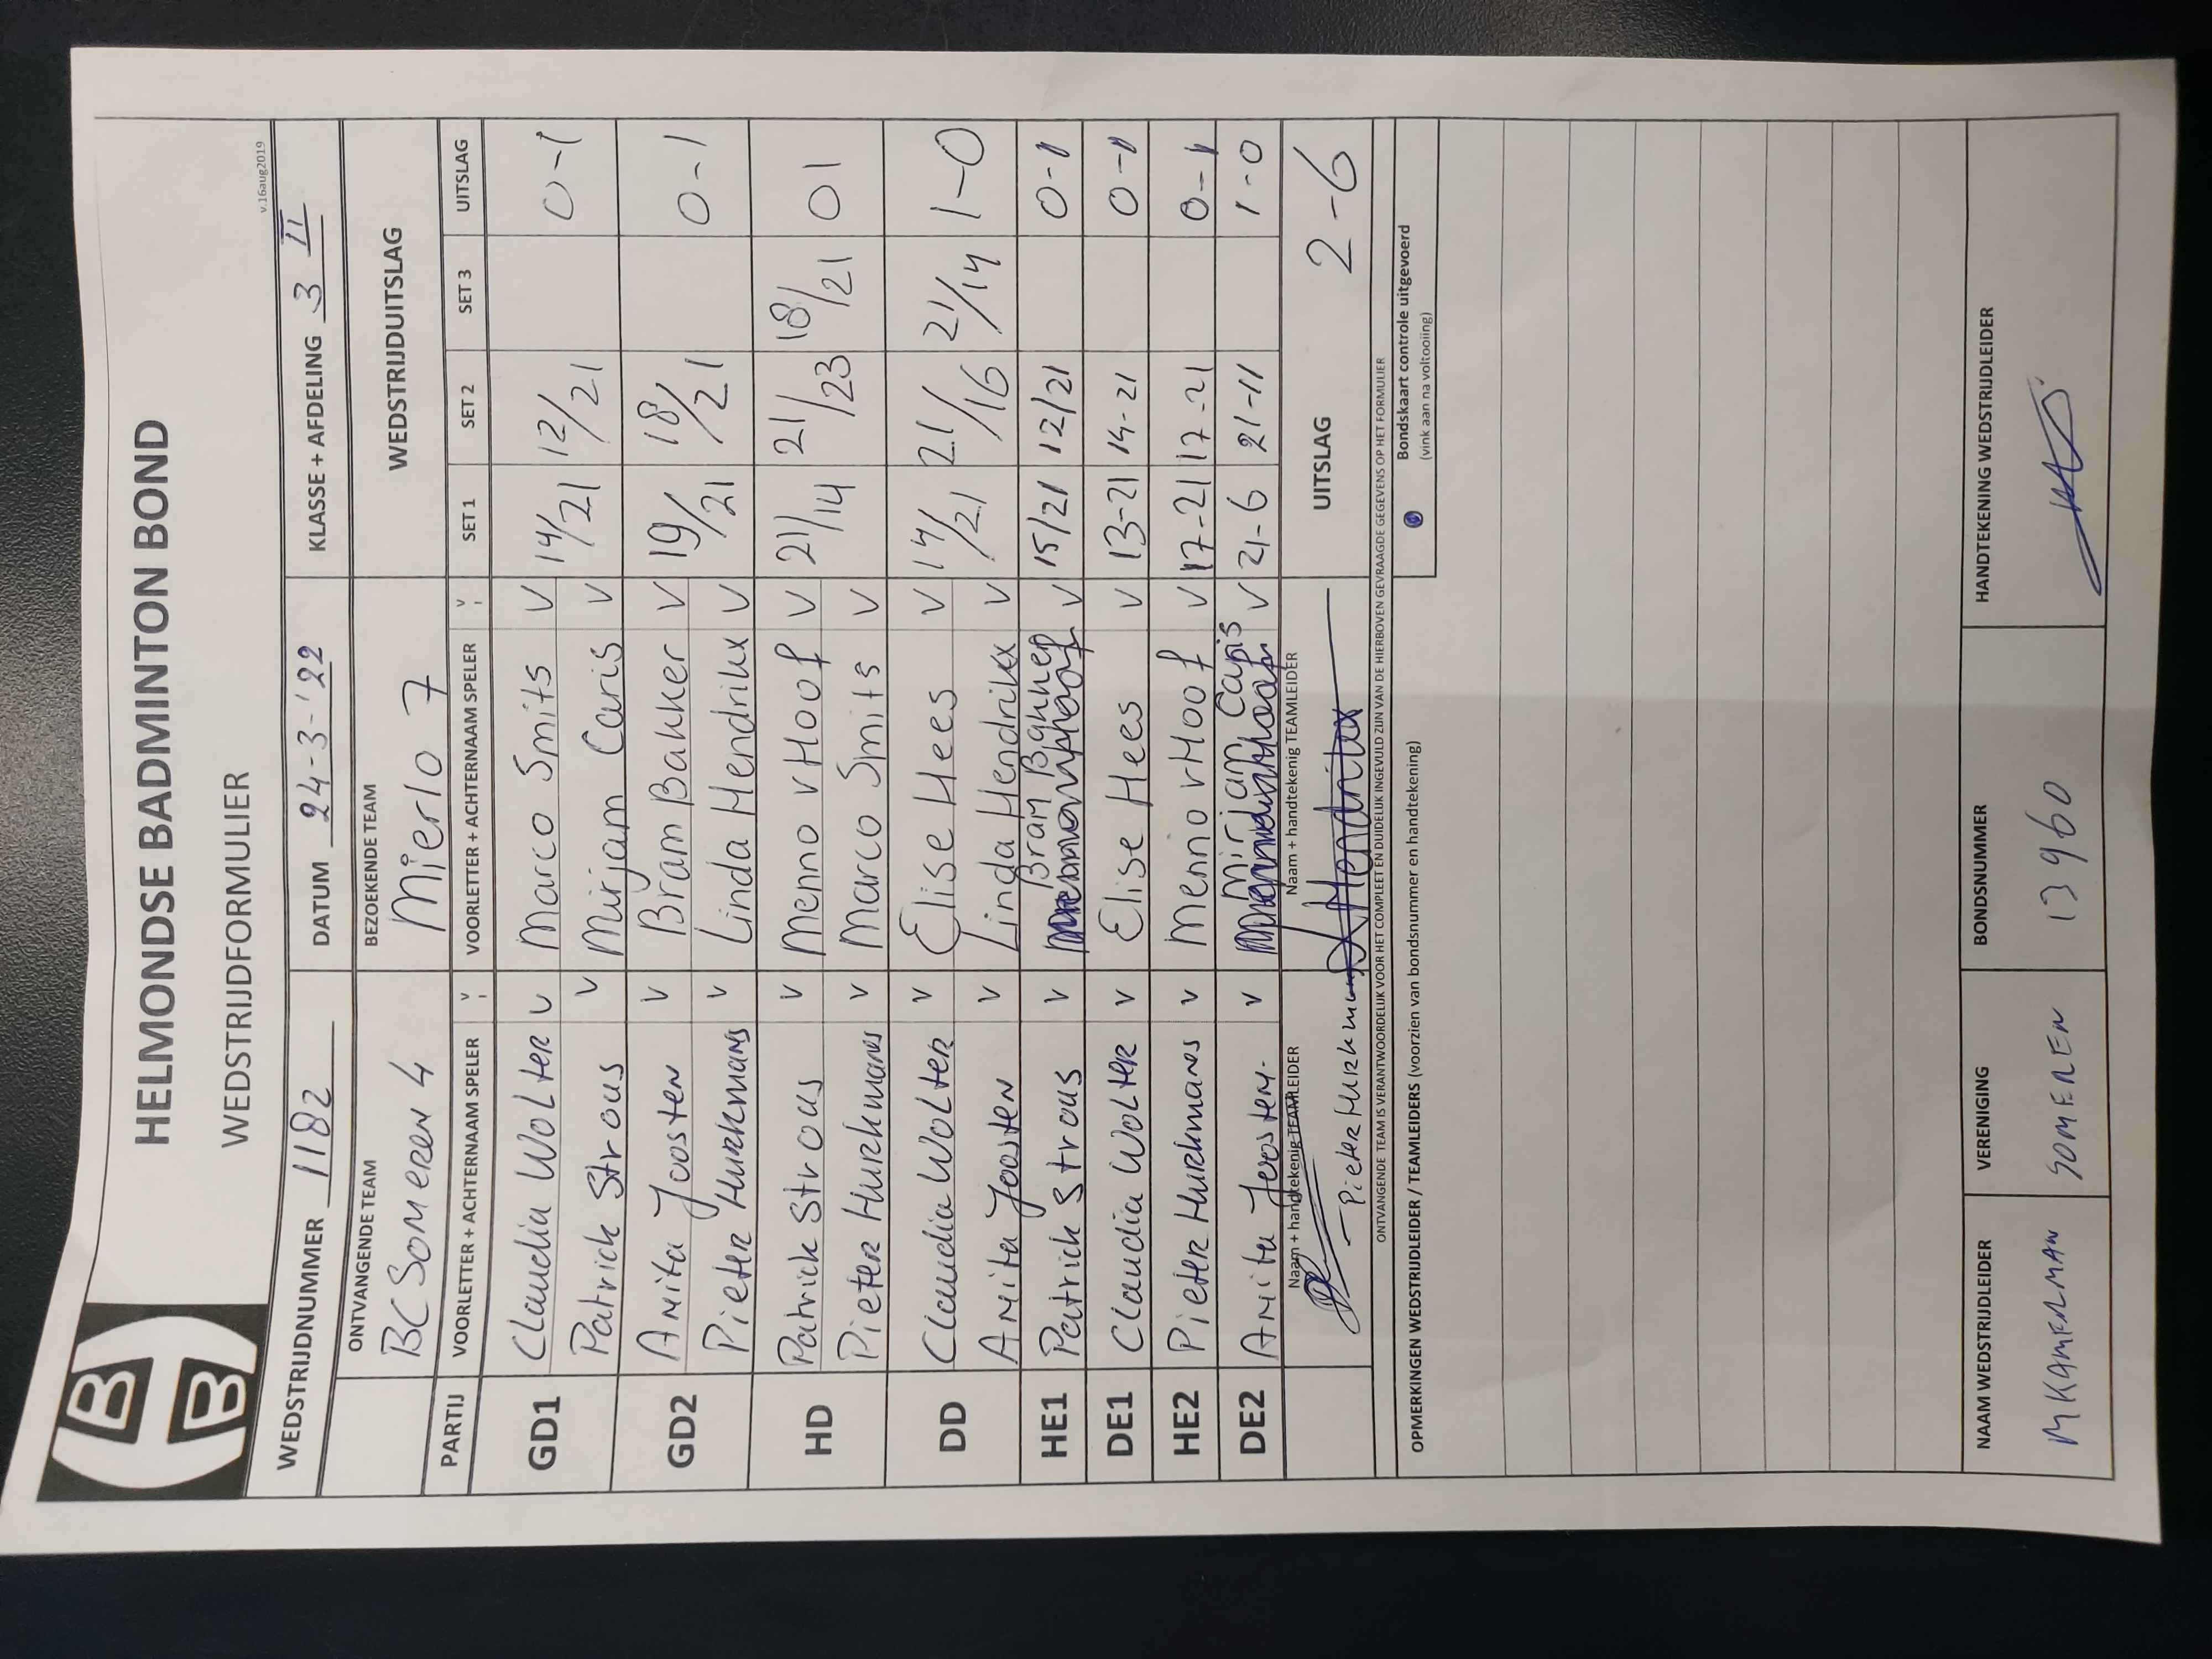 HB
B
HELMONDSE BADMINTON BOND
WEDSTRIJDFORMULIER
v.16aug2019
WEDSTRIJDNUMMER 1182 DATUM 24-3-'22 KLASSE + AFDELING 3 II
ONTVANGENDE TEAM BEZOEKENDE TEAM WEDSTRIJDUITSLAG
BC Someren 4 Mierlo 7
PARTIJ VOORLETTER + ACHTERNAAM SPELER V VOORLETTER + ACHTERNAAM SPELER V SET 1 SET 2 SET 3 UITSLAG
GD1 Claudia Wolter V Marco Smits V 14/21 12/21 0-1
Patrick Strous V Mirjam Caris V
GD2 Anita Joosten V Bram Bakker V 19/21 18/21 0-1
Pieter Hurkmans V Linda Hendrikx V
HD Patrick Strous V Menno vHoof V 21/14 21/23 18/21 01
Pieter Hurkmans V Marco Smits V
DD Claudia Wolter V Elise Hees V 14/21 21/16 21/14 1-0
Anita Joosten V Linda Hendrikx V
HE1 Patrick Strous V Bram Bakker V 15/21 12/21 0-1
DE1 Claudia Wolter V Elise Hees V 13-21 14-21 0-1
HE2 Pieter Hurkmans V Menno vHoof V 17-21 17-21 0-1
DE2 Anita Joosten. V Mirjam Caris V 21-6 21-11 1-0
Naam + handtekenig TEAMLEIDER Naam + handtekenig TEAMLEIDER UITSLAG 2-6
- Pieter Hurkmans Hendrikx
ONTVANGENDE TEAM IS VERANTWOORDELIJK VOOR HET COMPLEET EN DUIDELIJK INGEVULD ZIJN VAN DE HIERBOVEN GEVRAAGDE GEGEVENS OP HET FORMULIER
OPMERKINGEN WEDSTRIJDLEIDER / TEAMLEIDERS (voorzien van bondsnummer en handtekening)
Bondskaart controle uitgevoerd
(vink aan na voltooiing)
NAAM WEDSTRIJDLEIDER VERENIGING BONDSNUMMER HANDTEKENING WEDSTRIJDLEIDER
M KAMERMAN SOMEREN 13960